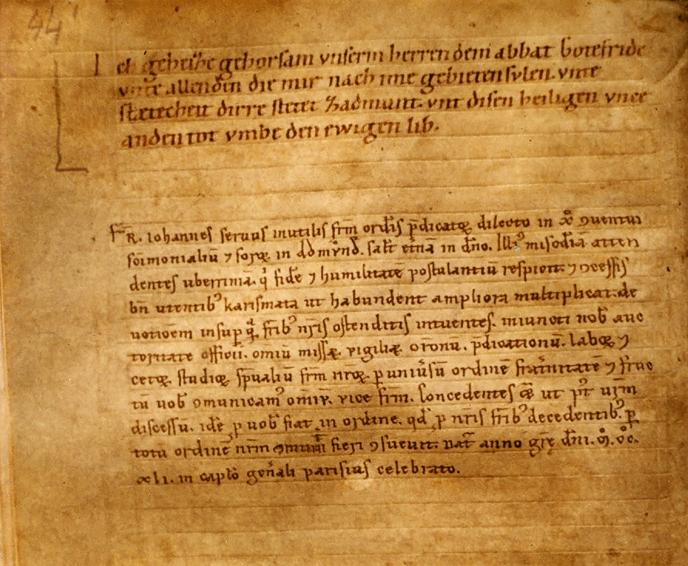 44
Ich geheize gehorsam vnserm herren dem abbat botefride
vnte allen den die mir nach ime gebieten svlen. vnte
stetecheit dirre stetet Zadmunt. vnt disen heiligen vnce
an den tot vmbe den ewigen lib.
FR. Iohannes seruus inutilis frm̄ ordīs p̄dicatoꝝ dilecto in xp̄o ꝯuentui
scīmonialiū ⁊ soroꝝ in salt̄ et̄na in dn̄o. misc̄diā atten
dentes uberrimā. q̄ fide ⁊ humilitate postulantiū respicit. ⁊ ꝯcessis
bn̄ utentibꝫ karismata ut habundent ampliora multiplicat. de
uotioem insup̄ q̄ fr̄ibꝫ nr̄is ostenditis intuentes. iniuncti nob̄ auc
toritate officii. omiū missaꝝ. vigiliaꝝ oronū. p̄dicationū. laboꝝ ⁊
cetoꝝ studioꝝ sp̄ualiū frm̄ nr̄oꝝ p̄ uniūsū ordinē frat̄nitatē ⁊ fruc
tū uob̄ ꝯmunicamꝰ vice frm̄. Concedentes ut pꝰ vr̄m
discessū. idē p̄ uob̄ fiat in ordine. qd̄ p̄ nr̄is fr̄ibꝫ decedentibꝫ p̄
totū ordinē nr̄m fieri ꝯsueuit. Dat̄ anno grē dn̄i. M̊. CC̊.
xl i. in capl̄o gen̄ali parisius celebrato.